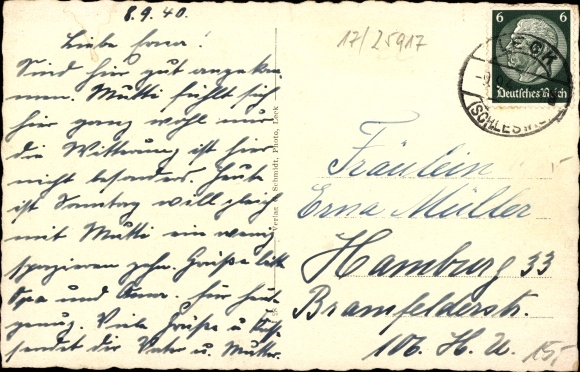 8.9.40.
Liebe Erna!
Sind hier gut angekom-
men. Mutti fühlt sich
hier ganz wohl nur
die Witterung ist hier
nicht besonders. Heute
ist Sonntag will gleich
mit Mutti ein wenig
spazieren gehn. Grüße bitte
und für heute
genug. Viele Grüße u. Küsse
sendet dir Vater u. Mutter.
Verlag Schmidt, Photo, Leck
17/25917
6 6
Deutsches Reich
LECK
(SCHLESW.
Fräulein
Erna Müller
Hamburg 33
Bramfelderstr.
106. H. U.
15,-